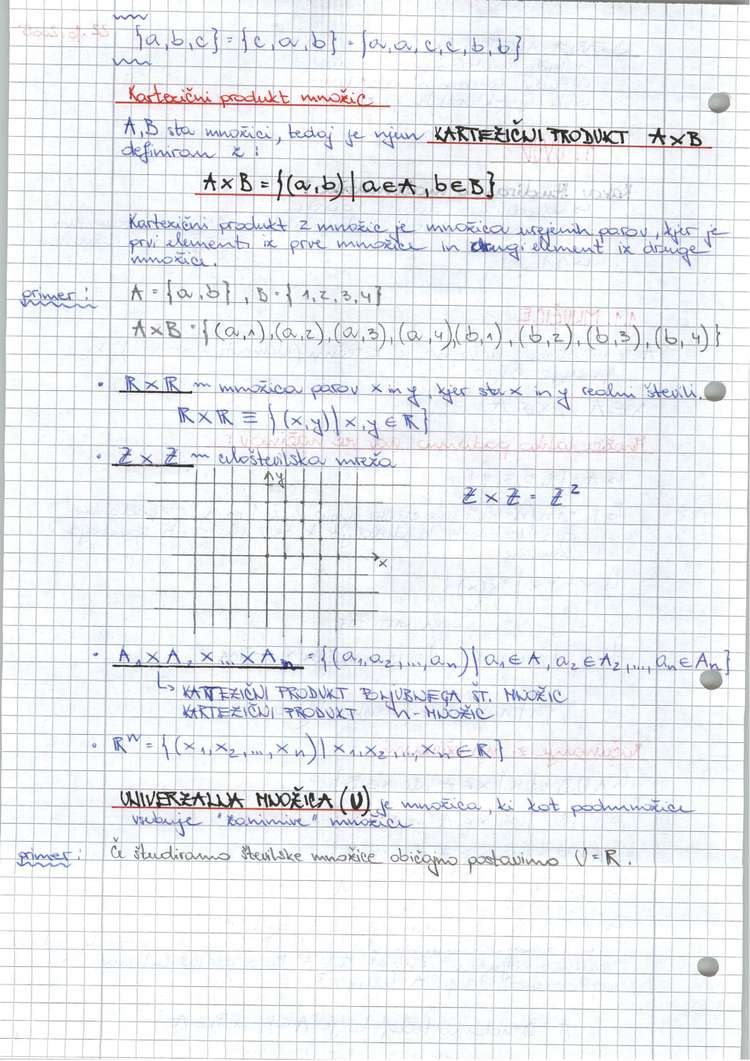 {a, b, c} = {c, a, b} = {a, a, c, c, b, b}
Kartezični produkt množic
A, B sta množici, tedaj je njun KARTEZIČNI PRODUKT A×B
definiran z:
A×B = {(a, b) | a∈A, b∈B}
Kartezični produkt 2 množic je množica urejenih parov, kjer je
prvi element iz prve množice in drugi element iz druge
množice.
primer: A = {a, b}, B = {1, 2, 3, 4}
A×B = {(a, 1), (a, 2), (a, 3), (a, 4), (b, 1), (b, 2), (b, 3), (b, 4)}
• ℝ×ℝ ~ množica parov x in y, kjer sta x in y realni števili.
ℝ×ℝ ≡ {(x, y) | x, y ∈ ℝ}
• ℤ×ℤ ~ celoštevilska mreža
y
ℤ×ℤ = ℤ²
x
• A₁×A₂×...×Aₙ = {(a₁, a₂, ..., aₙ) | a₁∈A, a₂∈A₂, ..., aₙ∈Aₙ}
↳ KARTEZIČNI PRODUKT POLJUBNEGA ŠT. MNOŽIC
KARTEZIČNI PRODUKT n-MNOŽIC
• ℝⁿ = {(x₁, x₂, ..., xₙ) | x₁, x₂, ..., xₙ ∈ ℝ}
UNIVERZALNA MNOŽICA (U) je množica, ki kot podmnožice
vsebuje "zanimive" množice
primer: Če študiramo številske množice običajno postavimo U = ℝ.